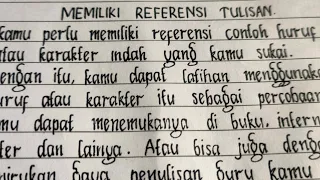 MEMILIKI REFERENSI TULISAN.
kamu perlu memiliki referensi contoh huruf
atau karakter indah yang kamu sukai.
dengan itu, kamu dapat latihan menggunaka
huruf atau karakter itu sebagai percobaan
mu dapat menemukanya di buku, intern
ter dan lainya. Atau bisa juga denga
nirukan gaya penulisan guru kamu